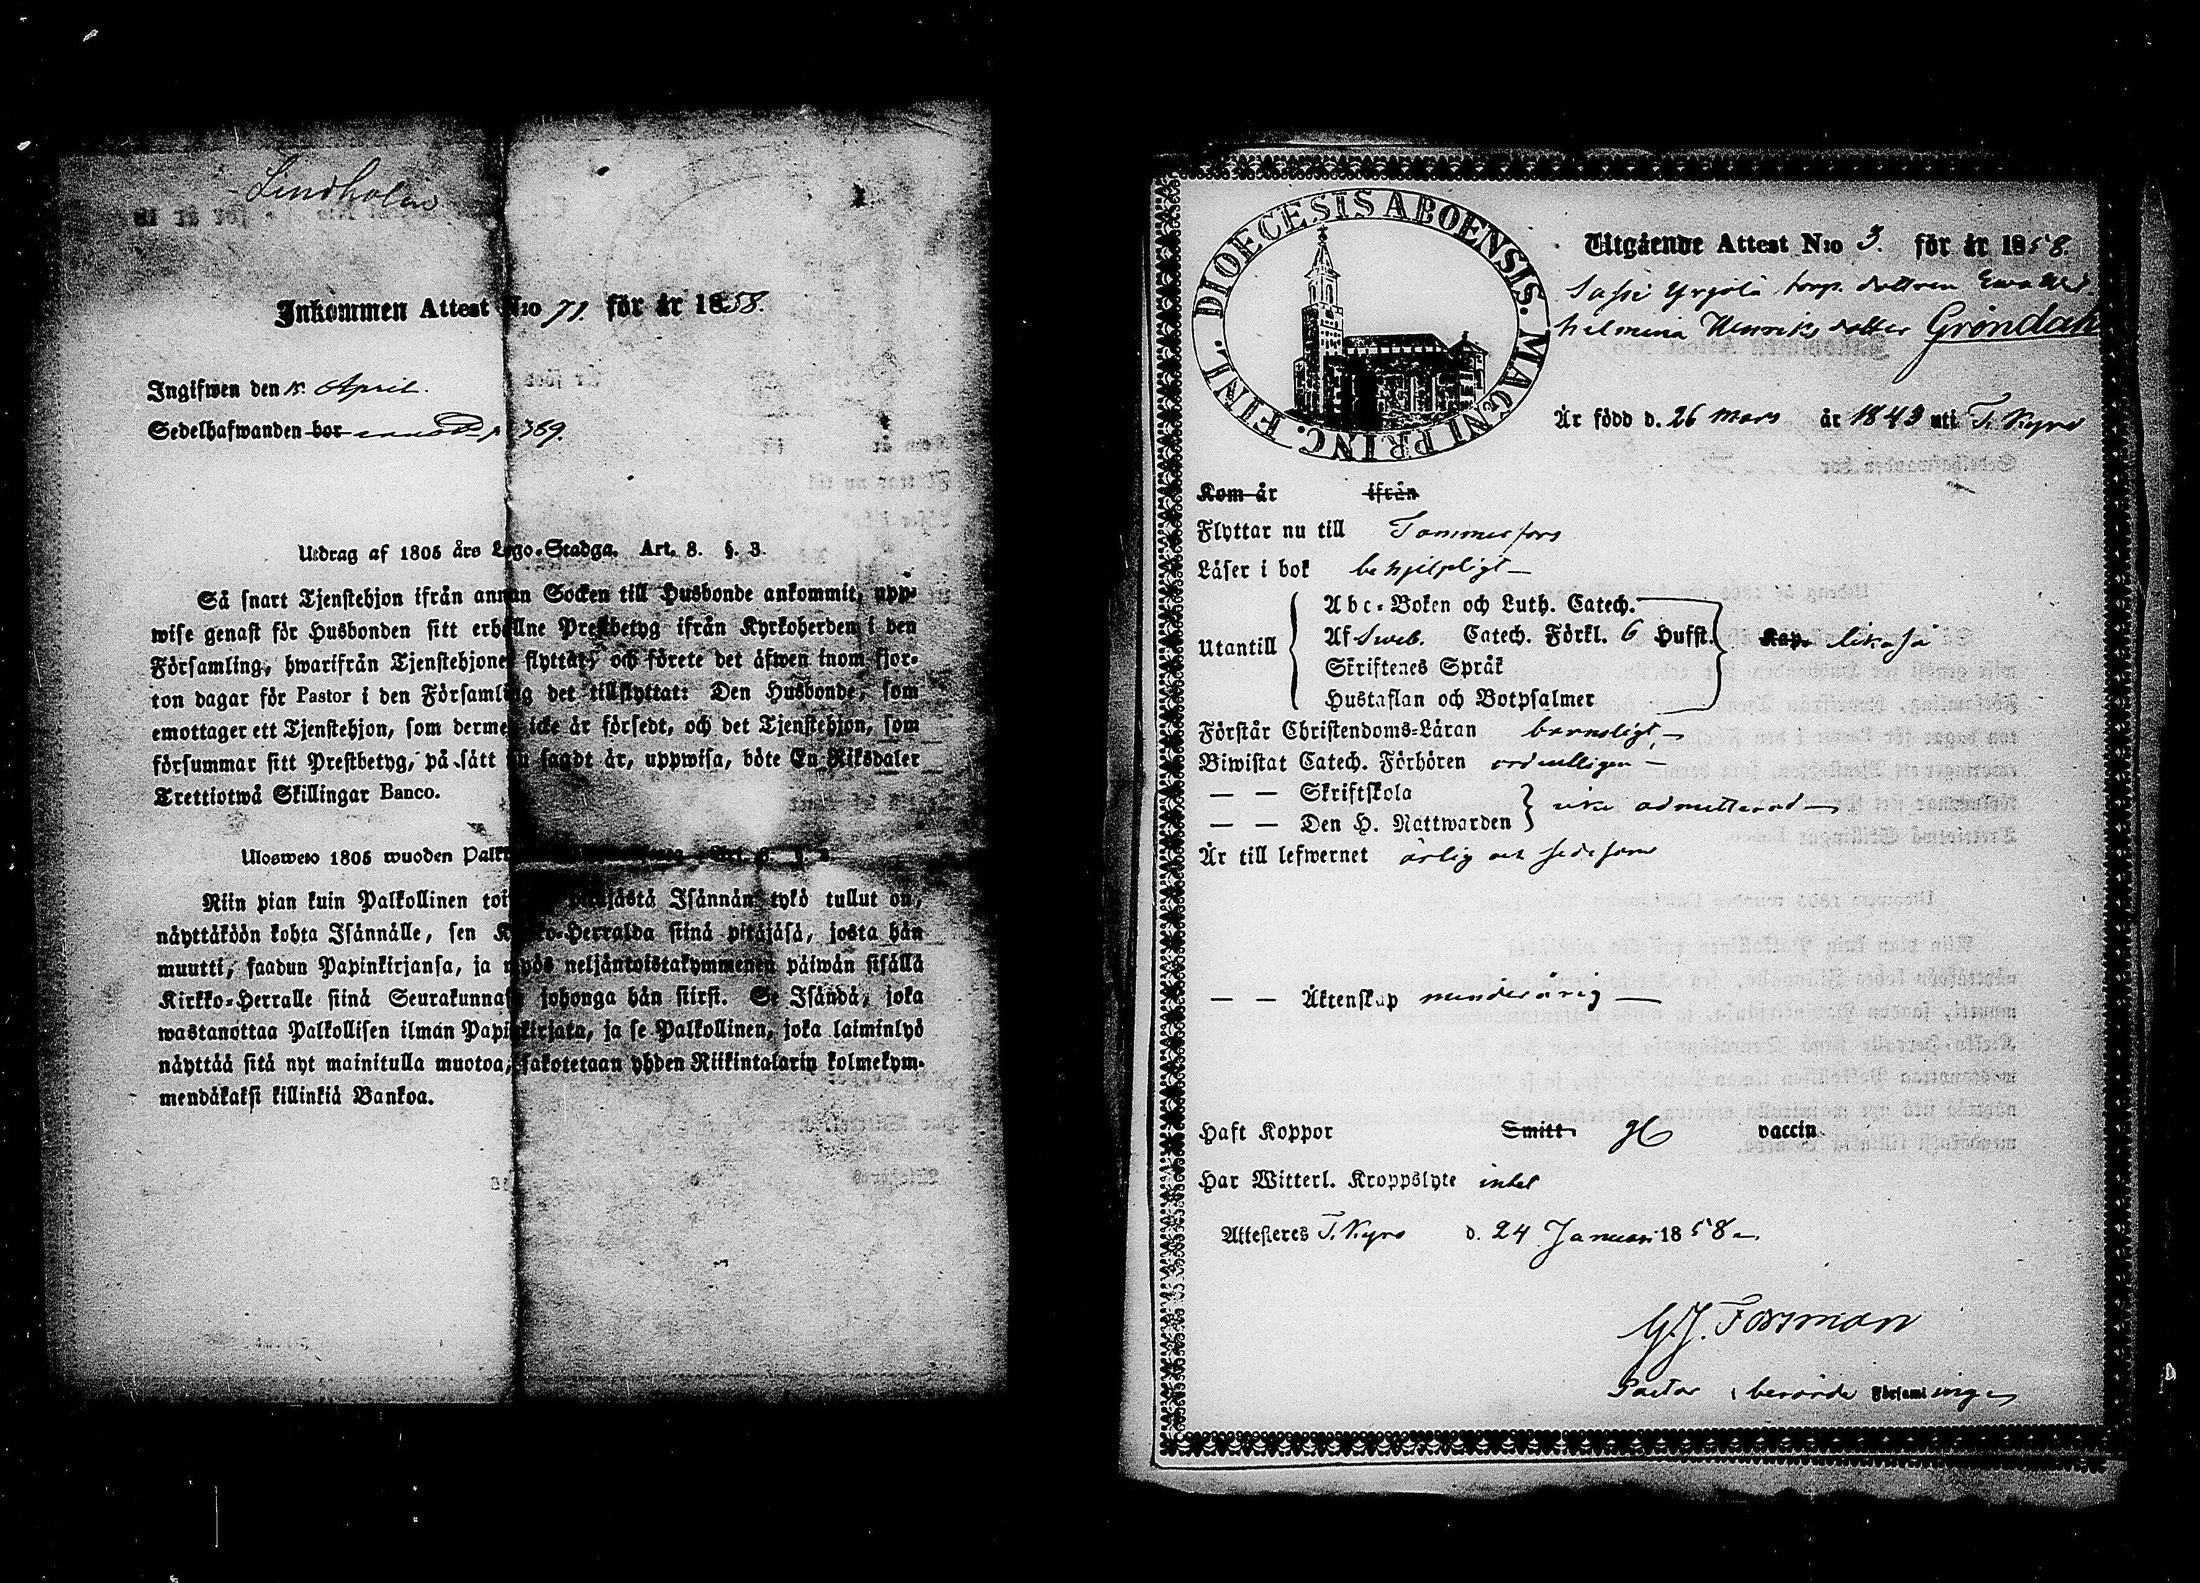 Lindholm
Inkommen Attest N:o 71. för år 1858.
Ingifwen den 15 April.
Sedelhafwanden bor p 369.
Utdrag af 1805 års Lego-Stadga. Art. 8. §. 3.
Så snart Tjenstehjon ifrån annan Socken till Husbonde ankommit, upp-
wise genast för Husbonden sitt erhållne Prestbetyg ifrån Kyrkoherden i den
Församling, hwarifrån Tjenstehjonet flyttat, och förete det äfwen inom fjor-
ton dagar för Pastor i den Församling det tillflyttat: Den Husbonde, som
emottager ett Tjenstehjon, som dermed icke är försedt, och det Tjenstehjon, som
försummar sitt Prestbetyg, på sätt nu sagdt är, uppwisa, böte En Riksdaler
Trettiotwå Skillingar Banco.
Ulosweto 1805 wuoden
Niin pian kuin Palkollinen pitäjästä Isännän tykö tullut on,
näyttäköön kohta Isännälle, sen Kirkko-Herralda siinä pitäjäsä, josta hän
muutti, saadun Papinkirjansa, ja myös neljäntoistakymmenen päiwän sisällä
Kirkko-Herralle siinä Seurakunnasa johonga hän siirsi. Se Isändä, joka
wastanottaa Palkollisen ilman Papinkirjata, ja se Palkollinen, joka laiminlyö
näyttää sitä nyt mainitulla muotoa, sakotetaan yhden Riikintalarin kolmekym-
mendäkaksi killinkiä Bankoa.
FINL. DIOECESIS ABOENSIS. MAGNI PRINC.
Utgående Attest N:o 3. för år 1858.
Sassi Yrjölä torp. dottren Ewa Wil
helmina Henriksdotter Gröndahl
Är född d. 26 mars år 1843 uti T. Kyro
Kom år ifrån
Flyttar nu till Tammerfors
Läser i bok behjelpligt
Utantill
Abc-Boken och Luth. Catech.
Af Sweb. Catech. Förkl. 6 Hufst. Kap. likaså
Skriftenes Språk
Hustaflan och Botpsalmer
Förstår Christendoms-Läran barnsligt
Biwistat Catech. Förhören ordentligen
— — Skriftskola
— — Den H. Nattwarden icke admitterad
Är till lefwernet ärlig och sedesam
— — Äktenskap minderårig
Haft Koppor Smitt. vaccin
Har Witterl. Kroppslyte intet
Attesteres T. Kyro d. 24 Januari 1858
G. J. Forsman
Pastor i berörde Församlingen